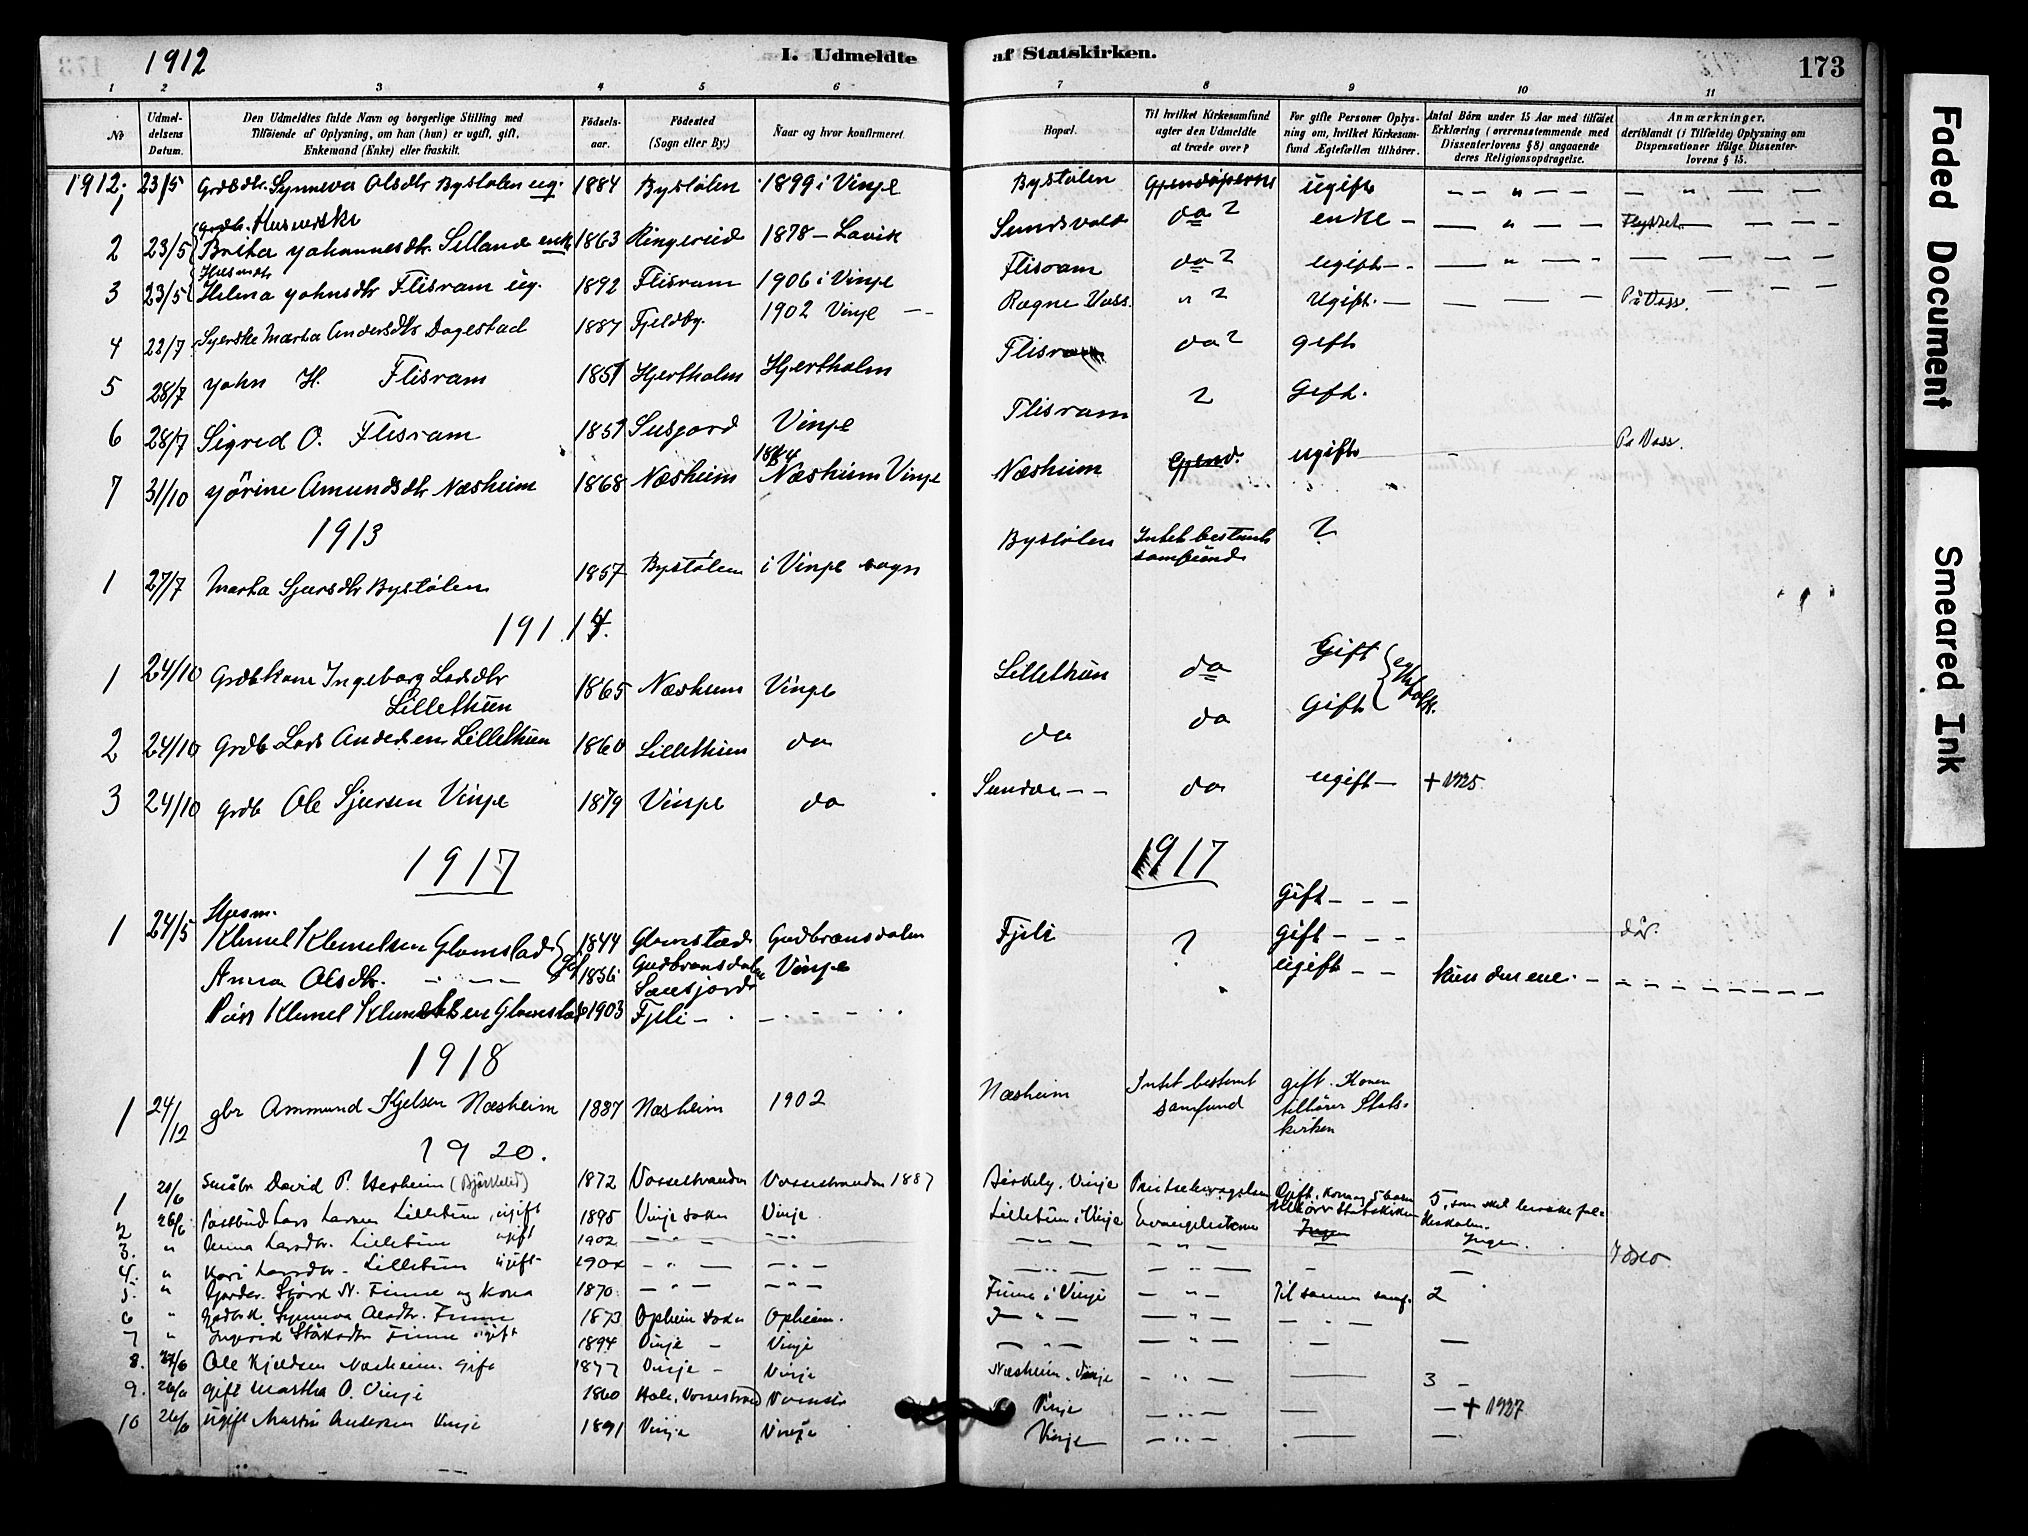 1912
I. Udmeldte af Statskirken.
173
1 2 3 4 5 6 7 8 9 10 11
No
Udmeldelsens Datum.
Den Udmeldtes fulde Navn og borgerlige Stilling med Tilföiende af Oplysning, om han (hun) er ugift, gift, Enkemand (Enke) eller fraskilt.
Födselsaar.
Födested (Sogn eller By.)
Naar og hvor konfirmeret.
Bopæl.
Til hvilket Kirkesamfund agter den Udmeldte at træde over?
For gifte Personer Oplysning om, hvilket Kirkesamfund Ægtefællen tilhörer.
Antal Börn under 15 Aar med tilföiet Erklæring (overensstemmende med Dissenterlovens § 8) angaaende deres Religionsopdragelse.
Anmærkninger, deriblandt (i Tilfælde) Oplysning om Dispensationer ifölge Dissenterlovens § 15.
1912;
1 23/5 Grdbdtr. Synneva Olsdtr Bystølen ug. 1884 Bystølen 1899 i Vinje Bystølen ugift — — " — — — " — —
2 23/5 Brita Johannesdtr. Selland enke 1863 Ringereid 1878 – Lavik Sundsvald do ? enke — — " — —
3 23/5 Helena Johnsdtr Flisram ug. 1892 Flisram 1906 i Vinje Flisram do ? ugift — — " — —
4 22/7 Syerske Marta Andersdtr Dagestad 1887 Fjeldby. 1902 Vinje — — Rogne Voss. " ? Ugift. — — — — På Voss.
5 28/7 John H. Flisram 1851 Hjertholm Hjertholm Flisram do ? gift
6 28/7 Sigred O. Flisram 1857 Susjord Vinje Flisram ? Gift.
7 31/10 Jörine Amundsdtr Næsheim 1868 Næsheim 1884 Næsheim Vinje Næsheim Gjend. ugift — Pa Voss.
1913
1 27/7 Marta Sjursdtr Bystölen 1857 Bystølen i Vinje sogn Bystølen Intet bestemt samfund ?
191.14.
1 24/10 Grdbkone Ingeborg Larsdtr Lillethun 1865 Næsheim Vinje Lillethun do Gift
2 24/10 Grdb Lars Andersen Lillethun 1860 Lillethun do do do Gift
3 24/10 Grdb Ole Sjursen Vinje 1879 Vinje do Sundve — — do ugift — + 1925
1917 1917
Husm.
1 24/5 Klemet Klemetsen Glomstad 1844 Glomstad Gudbransdalen Fjeli ? gift — — — död.
Anna Olsdtr. — — — 1856 Gudbransdalen Vinje gift — — —
Klemet Klemetsen Glomstad 1903 Fjeli — ugift — — kun den ene. — — —
1918
1 24/12 gbr Ammund Kjelsen Næsheim 1887 Næsheim 1902 Næsheim Intet bestemt samfund gift. Konen tilhører Statskirken
1920.
1 20/6 Småbr David P. Herheim 1872 Vossestranden Vossestranden 1887 Birkely, Vinje 5, som skal
2 26/6 Postbud Lars Larsen Lillethun, ugift 1895 Vinje sokn Vinje Lillethun i Vinje Ingen.
3. " Anna Larsdtr. Lillethun ugift 1902 — " — — " — — " —
4. " Kari Larsdtr. Lillethun ugift 1904 — " — — " — — " — — " —
5. " Gardbr. Sjurd N. Finne og kona 1870 — " — — " — Finne i Vinje — " — Til samme samf. 2
6 " Synneva Olsdtr. Finne 1873 Opheim sokn Opheim. — " — — " —
7 " Ingerid Finne ugift 1894 Vinje — Vinje — " — — " — —
8. 26/6 Ole Kjeldsen Næsheim. Gift 1877 Vinje — Vinje Næsheim, Vinje — " — — 3 —
9. 26/6 Gift Martha O. Vinje 1860 Vinje — " — — — + 1927
10 26/6 Ugift Martin Andersen Vinje 1891 Vinje Vinje Vinje — " — — —
Faded Document
Smeared Ink